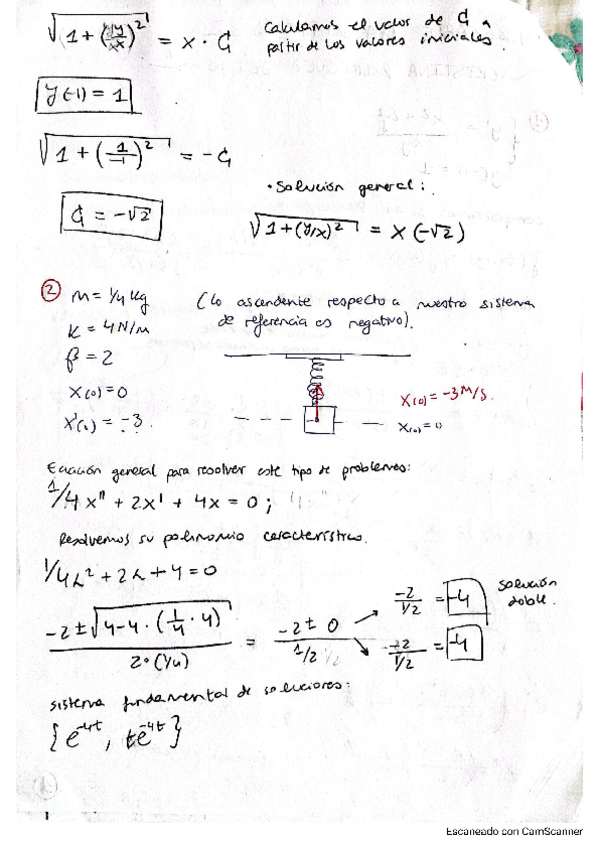 √1+(y/x)² = x · C₁
Calculamos el valor de C₁ a
partir de los valores iniciales.
y(-1) = 1
√1+(1/-1)² = -C₁
C₁ = -√2
• Solución general:
√1+(y/x)² = x(-√2)
② m = 1/4 kg
(Lo ascendente respecto a nuestro sistema
de referencia es negativo).
K = 4N/m
β = 2
x(0) = 0
x'(0) = -3.
x(0) = -3 m/s.
x(0) = 0
Ecuación general para resolver este tipo de problemas:
1/4 x'' + 2x' + 4x = 0;
Resolvemos su polinomio característico.
1/4 λ² + 2λ + 4 = 0
-2 ± √4-4·(1/4·4) / 2·(1/4) = -2 ± 0 / 1/2
-2 / 1/2 = -4
-2 / 1/2 = -4
solución
doble.
sistema fundamental de soluciones:
{e^-4t, te^-4t}
Escaneado con CamScanner